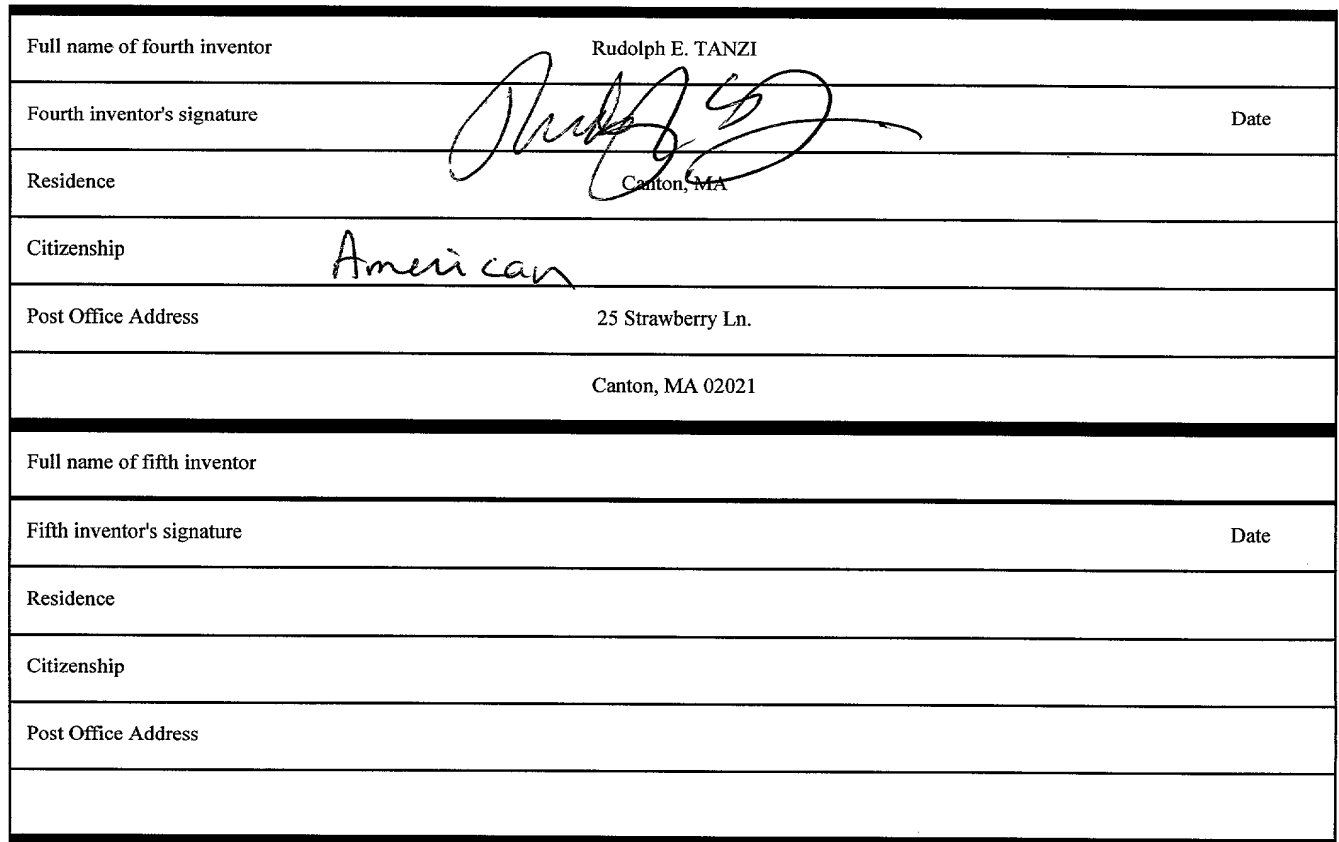 Full name of fourth inventor Rudolph E. TANZI
Fourth inventor's signature Date
Residence Canton, MA
Citizenship American
Post Office Address 25 Strawberry Ln.
Canton, MA 02021
Full name of fifth inventor
Fifth inventor's signature Date
Residence
Citizenship
Post Office Address